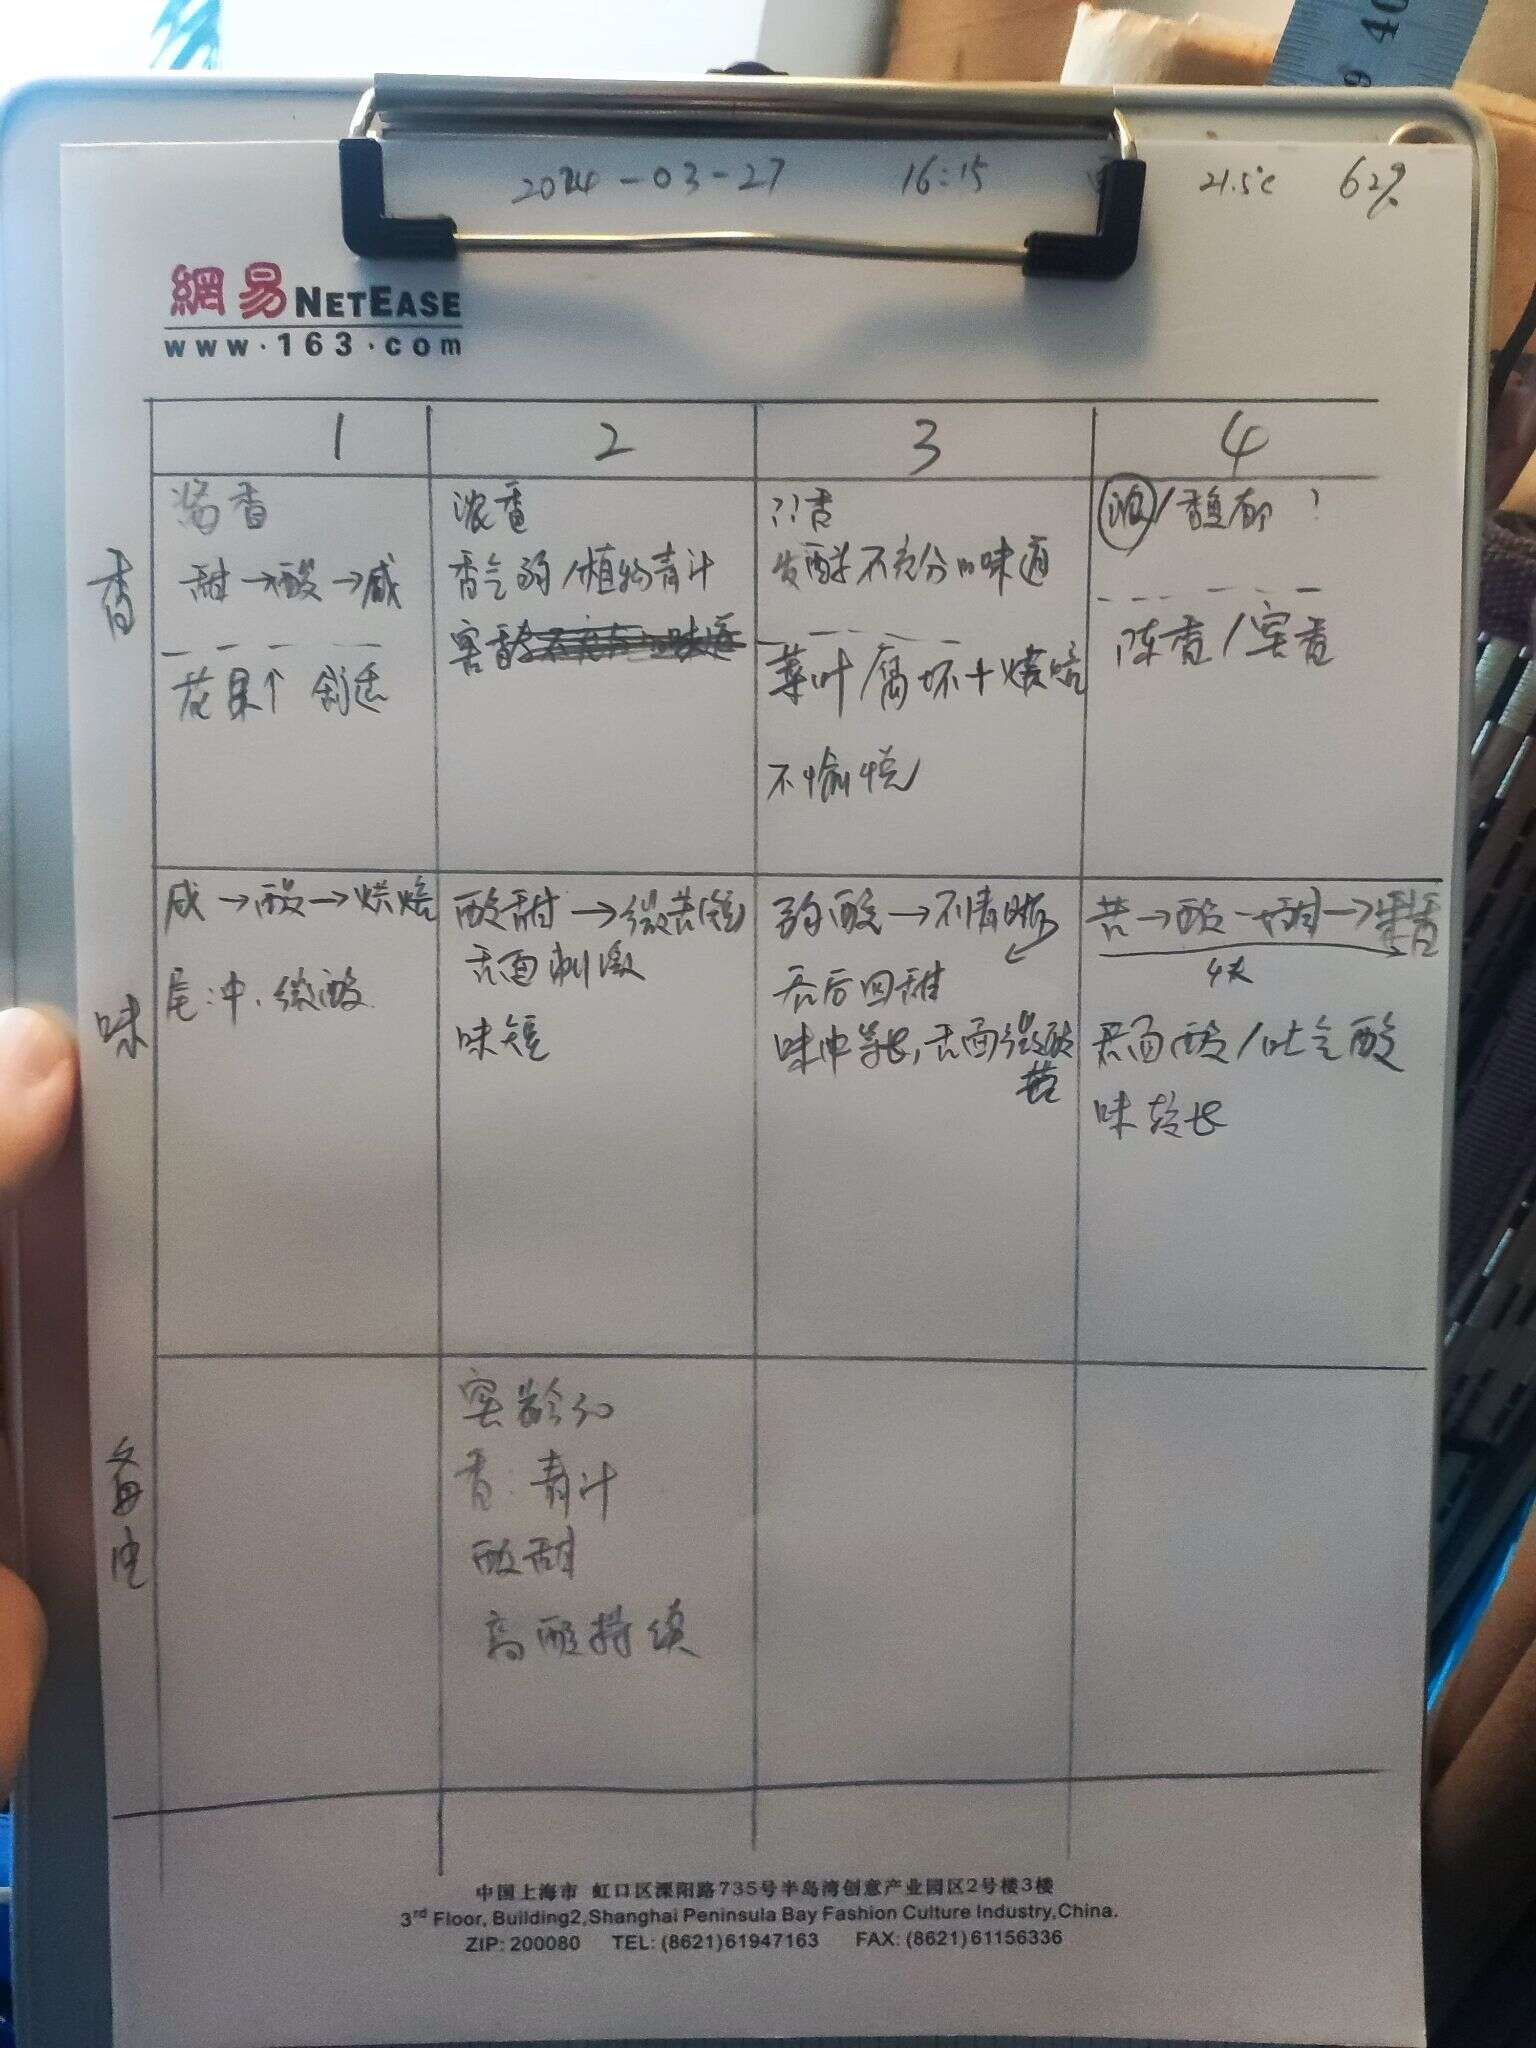 2024-03-27 16:15 21.5℃ 62%
40
9
網易NETEASE
www.163.com
1 2 3 4
香
酱香
甜→酸→咸
花果↑ 舒适
浓香
香气弱/植物青汁
窖香
??香
发酵不充分的味道
菜叶腐坏+烘焙
不愉悦
浓/馥郁?
陈香/窖香
味
咸→酸→烘焙
尾:冲、微酸
酸甜→微苦(短)
舌面刺激
味短
弱酸→不清晰
舌后回甜
味中等长,舌面强酸
苦
苦→酸→甜→果香
舌面酸/吐气酸
味较长
备注
窖龄30
香:青汁
酸甜
高酸持续
中国上海市 虹口区溧阳路735号半岛湾创意产业园区2号楼3楼
3rd Floor, Building2,Shanghai Peninsula Bay Fashion Culture Industry,China.
ZIP: 200080 TEL: (8621)61947163 FAX: (8621)61156336